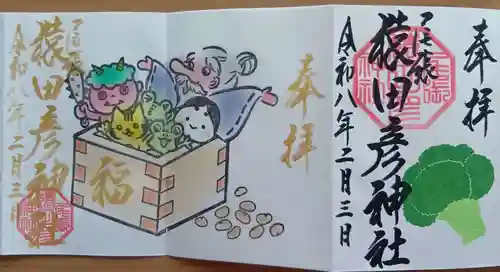 奉拝
猿田彦神社
令和八年二月三日
奉拝
福
猿田彦神
令和八年二月三日